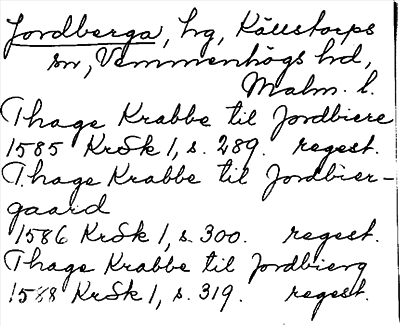 Jordberga, hg, Källstorps
sn, Vemmenhögs hd,
Malm. l.
Thage Krabbe til Jordbiere
1585 KrSk 1, s. 289. regest.
Thage Krabbe til Jordbier-
gaard
1586 KrSk 1, s. 300. regest.
Thage Krabbe til Jordbierg
1588 KrSk 1, s. 319. regest.